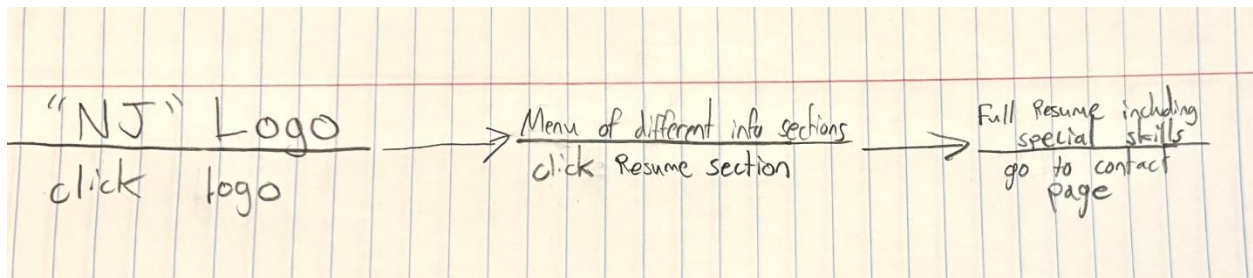 "NJ" Logo
click logo
Menu of different info sections
click Resume section
Full Resume including
special skills
go to contact
page